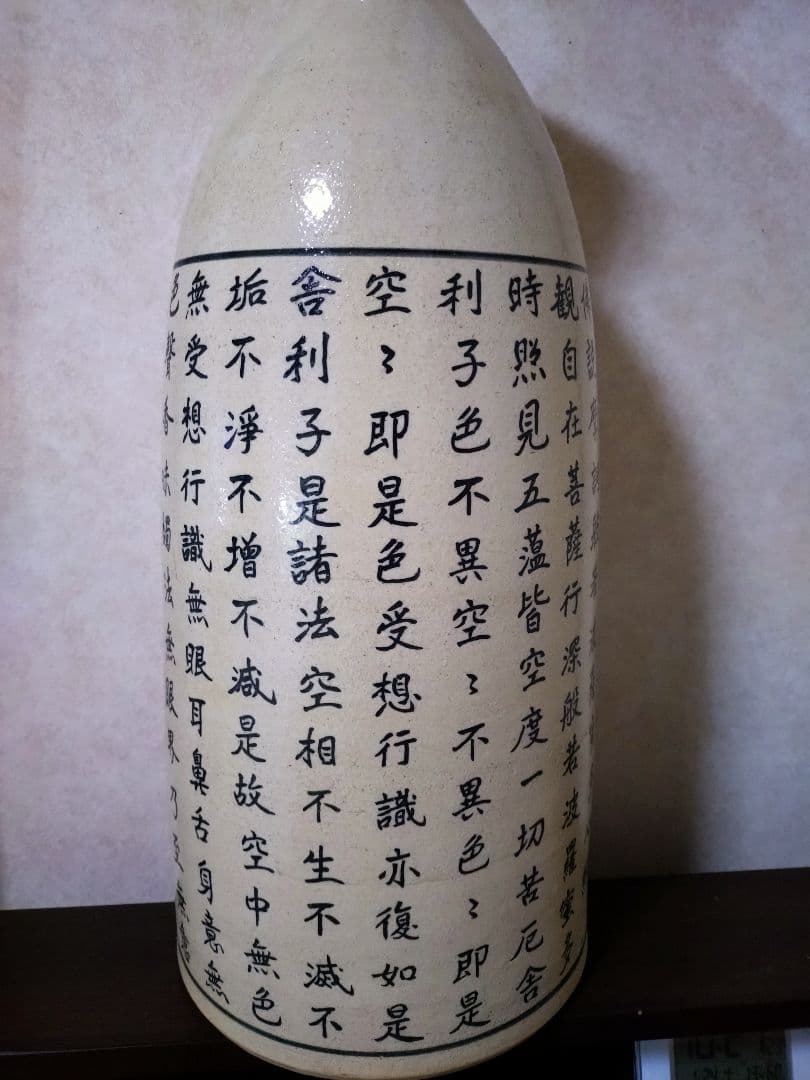 觀自在菩薩行深般若波羅蜜多
時照見五蘊皆空度一切苦厄舍
利子色不異空〻不異色〻即是
空〻即是色受想行識亦復如是
舎利子是諸法空相不生不滅不
垢不淨不增不減是故空中無色
無受想行識無眼耳鼻舌身意無
色聲香味觸法無眼界乃至無